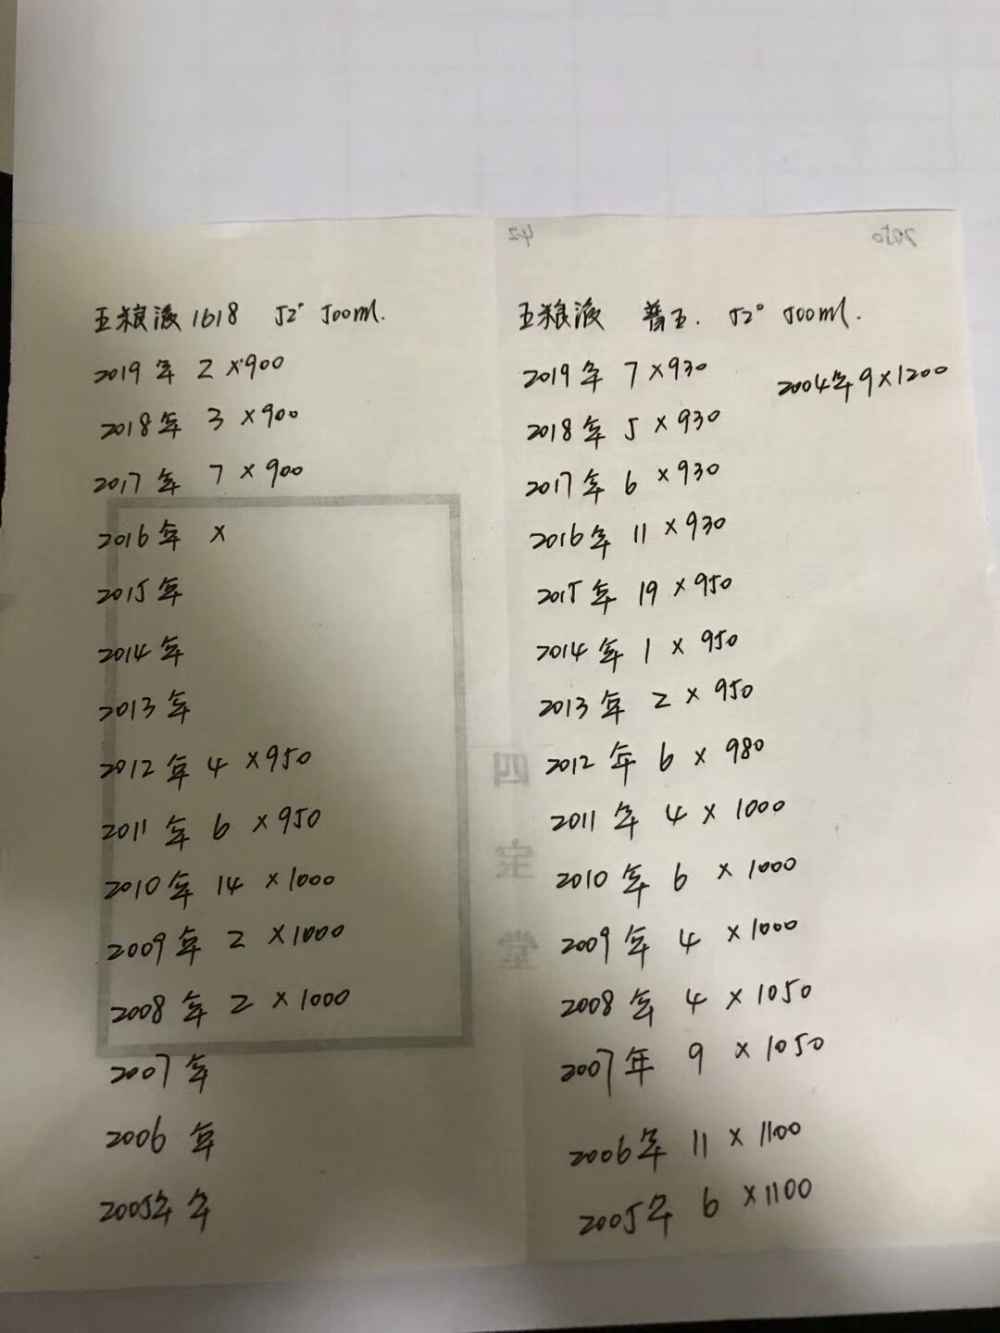 五粮液1618 52° 500ml.
2019年 2 ×900
2018年 3 ×900
2017年 7 ×900
2016年 ×
2015年
2014年
2013年
2012年 4 ×950
2011年 6 ×950
2010年 14 ×1000
2009年 2 ×1000
2008年 2 ×1000
2007年
2006年
2005年 年
五粮液 普五. 52° 500ml.
2019年 7 ×930
2018年 5 ×930
2017年 6 ×930
2016年 11 ×930
2015年 19 ×950
2014年 1 ×950
2013年 2 ×950
2012年 6 ×980
2011年 4 ×1000
2010年 6 ×1000
2009年 4 ×1000
2008年 4 ×1050
2007年 9 ×1050
2006年 11 ×1100
2005年 6 ×1100
2004年 9×1200
四
宝
堂